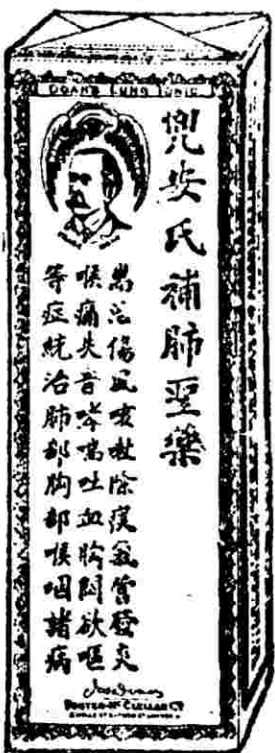 DOAN'S LUNG TONIC
兜安氏補肺聖藥
傷風咳嗽除痰氣管發炎
喉痛失音哮喘吐血胸悶欲嘔
等症統治肺部胸部喉咽諸病
FOSTER-McCLELLAN Co